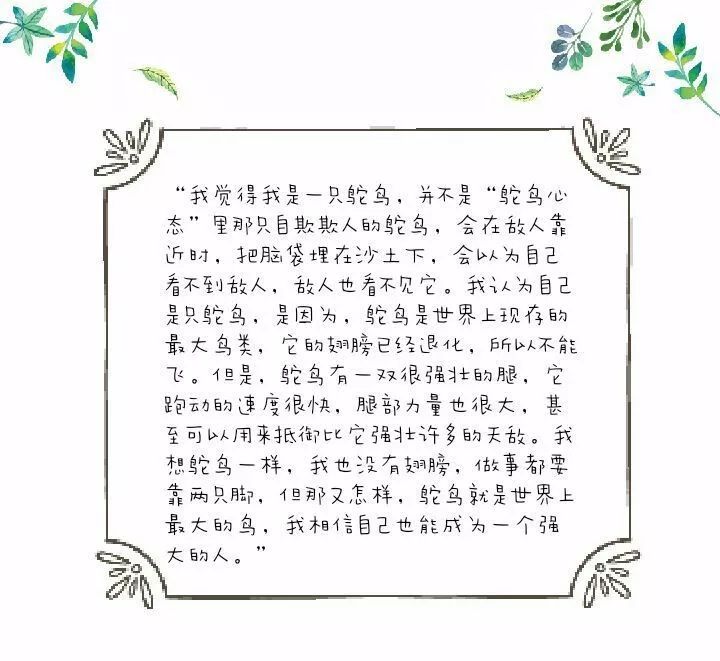 “我觉得我是一只鸵鸟，并不是“鸵鸟心
态”里那只自欺欺人的鸵鸟，会在敌人靠
近时，把脑袋埋在沙土下，会以为自己
看不到敌人，敌人也看不见它。我认为自己
是只鸵鸟，是因为，鸵鸟是世界上现存的
最大鸟类，它的翅膀已经退化，所以不能
飞。但是，鸵鸟有一双很强壮的腿，它
跑动的速度很快，腿部力量也很大，甚
至可以用来抵御比它强壮许多的天敌。我
想鸵鸟一样，我也没有翅膀，做事都要
靠两只脚，但那又怎样，鸵鸟就是世界上
最大的鸟，我相信自己也能成为一个强
大的人。”